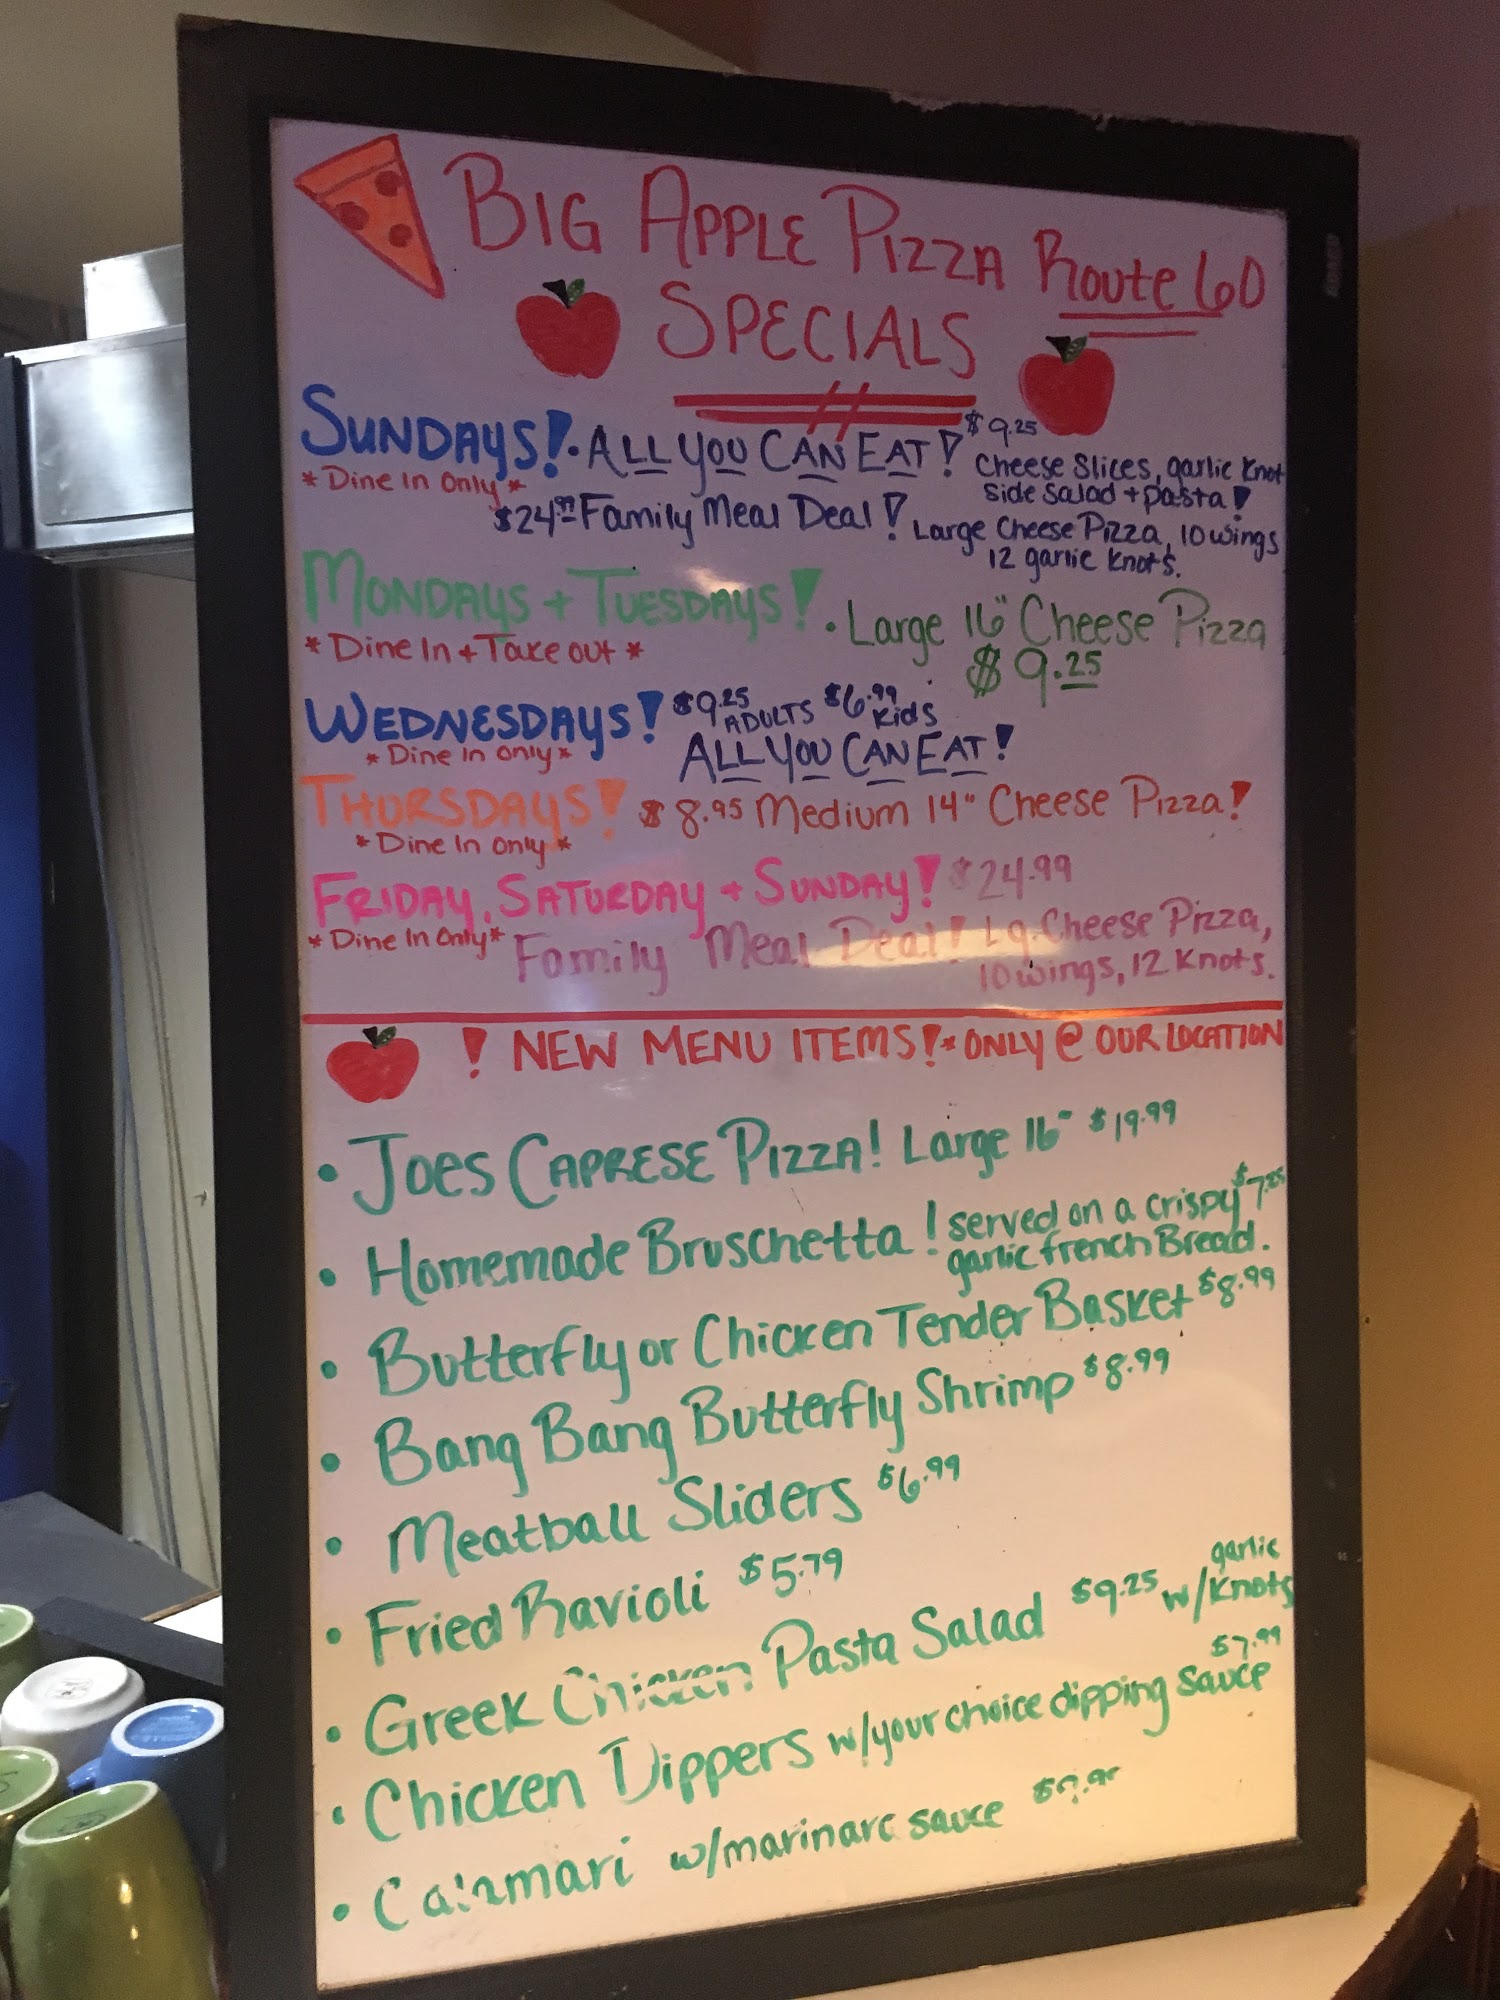 BIG APPLE PIZZA Route 60
SPECIALS
SUNDAYS! • ALL YOU CAN EAT! $9.25
Cheese Slices, garlic Knot
side salad + pasta!
*Dine In Only*
$24.99 Family Meal Deal! Large Cheese Pizza, 10 wings
12 garlic Knots.
MONDAYS + TUESDAYS! • Large 16" Cheese Pizza
*Dine In + Take out* $9.25
WEDNESDAYS! $9.25 ADULTS $6.99 Kids
*Dine In Only* ALL YOU CAN EAT!
THURSDAYS! $8.95 Medium 14" Cheese Pizza!
*Dine In Only*
FRIDAY, SATURDAY + SUNDAY! $24.99
*Dine In Only* Family Meal Deal! Lg. Cheese Pizza,
10 wings, 12 Knots.
! NEW MENU ITEMS! * ONLY @ OUR LOCATION
• JOES CAPRESE PIZZA! Large 16" $19.99
• Homemade Bruschetta! served on a crispy $7.25
garlic french Bread.
• Butterfly or Chicken Tender Basket $8.99
• Bang Bang Butterfly Shrimp $8.99
• Meatball Sliders $6.99
• Fried Ravioli $5.79
• Greek Chicken Pasta Salad $9.25 w/ garlic Knots
• Chicken Dippers w/your choice dipping sauce $7.99
• Calamari w/marinara sauce